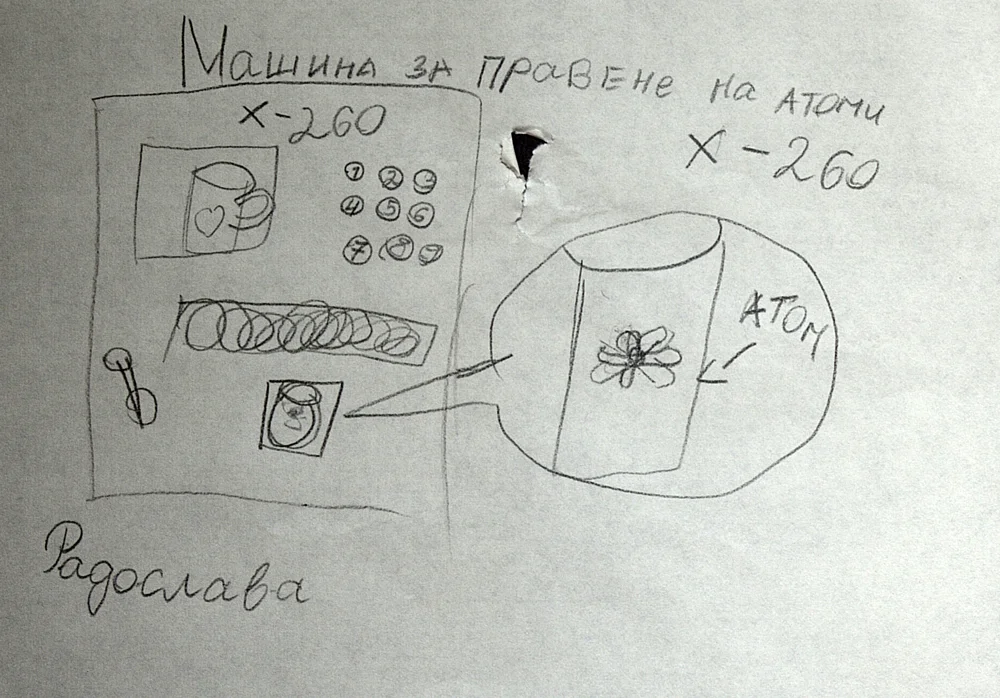 Машина за правене на атоми
X-260
X-260
1 2 3
4 5 6
7 8 9
Атом
Радослава